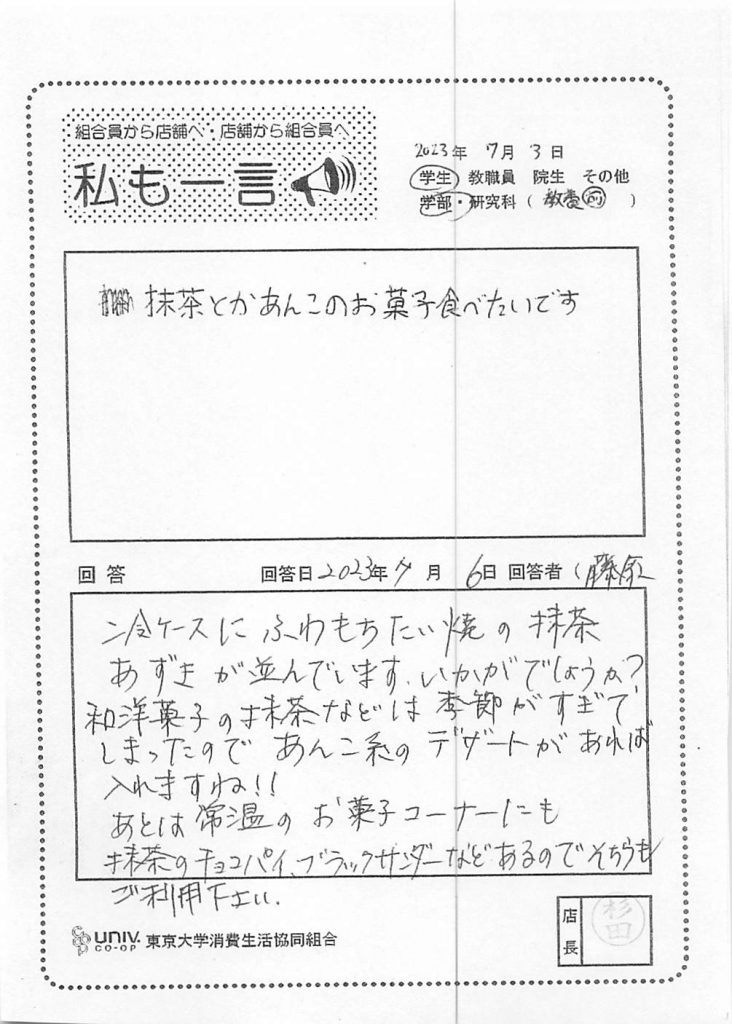 組合員から店舗へ・店舗から組合員へ
私も一言
2023年 7月 3日
学生 教職員 院生 その他
学部・研究科 ( 教養 前 )
抹茶とかあんこのお菓子食べたいです
回答 回答日 2023年 7月 6日 回答者 (藤原
冷ケースに ふわもちたい焼の抹茶
あずきが並んでいます、いかがでしょうか?
和洋菓子の抹茶などは季節がすぎて
しまったので あんこ系のデザートがあれば
入れますね!!
あとは常温のお菓子コーナーにも
抹茶のチョコパイ、ブラックサンダーなどあるのでそちらも
ご利用下さい.
UNIV.
CO-OP
東京大学消費生活協同組合
店長
杉田